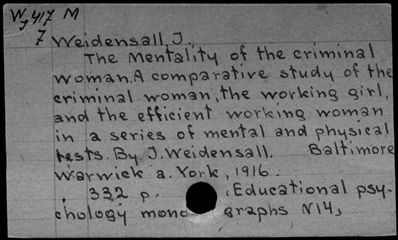 W 417 M
J
7 Weidensall, J.
The Mentality of the criminal
woman. A comparative study of the
criminal woman, the working girl,
and the efficient working woman
in a series of mental and physical
tests. By J. Weidensall. Baltimore
Warwick a. York, 1916.
332 p. (Educational psy-
chology monographs N14)